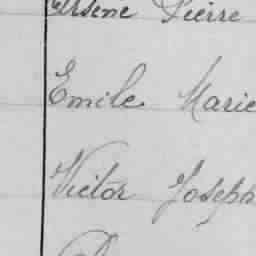 Arsène Pierre
Emile Marie
Victor Joseph